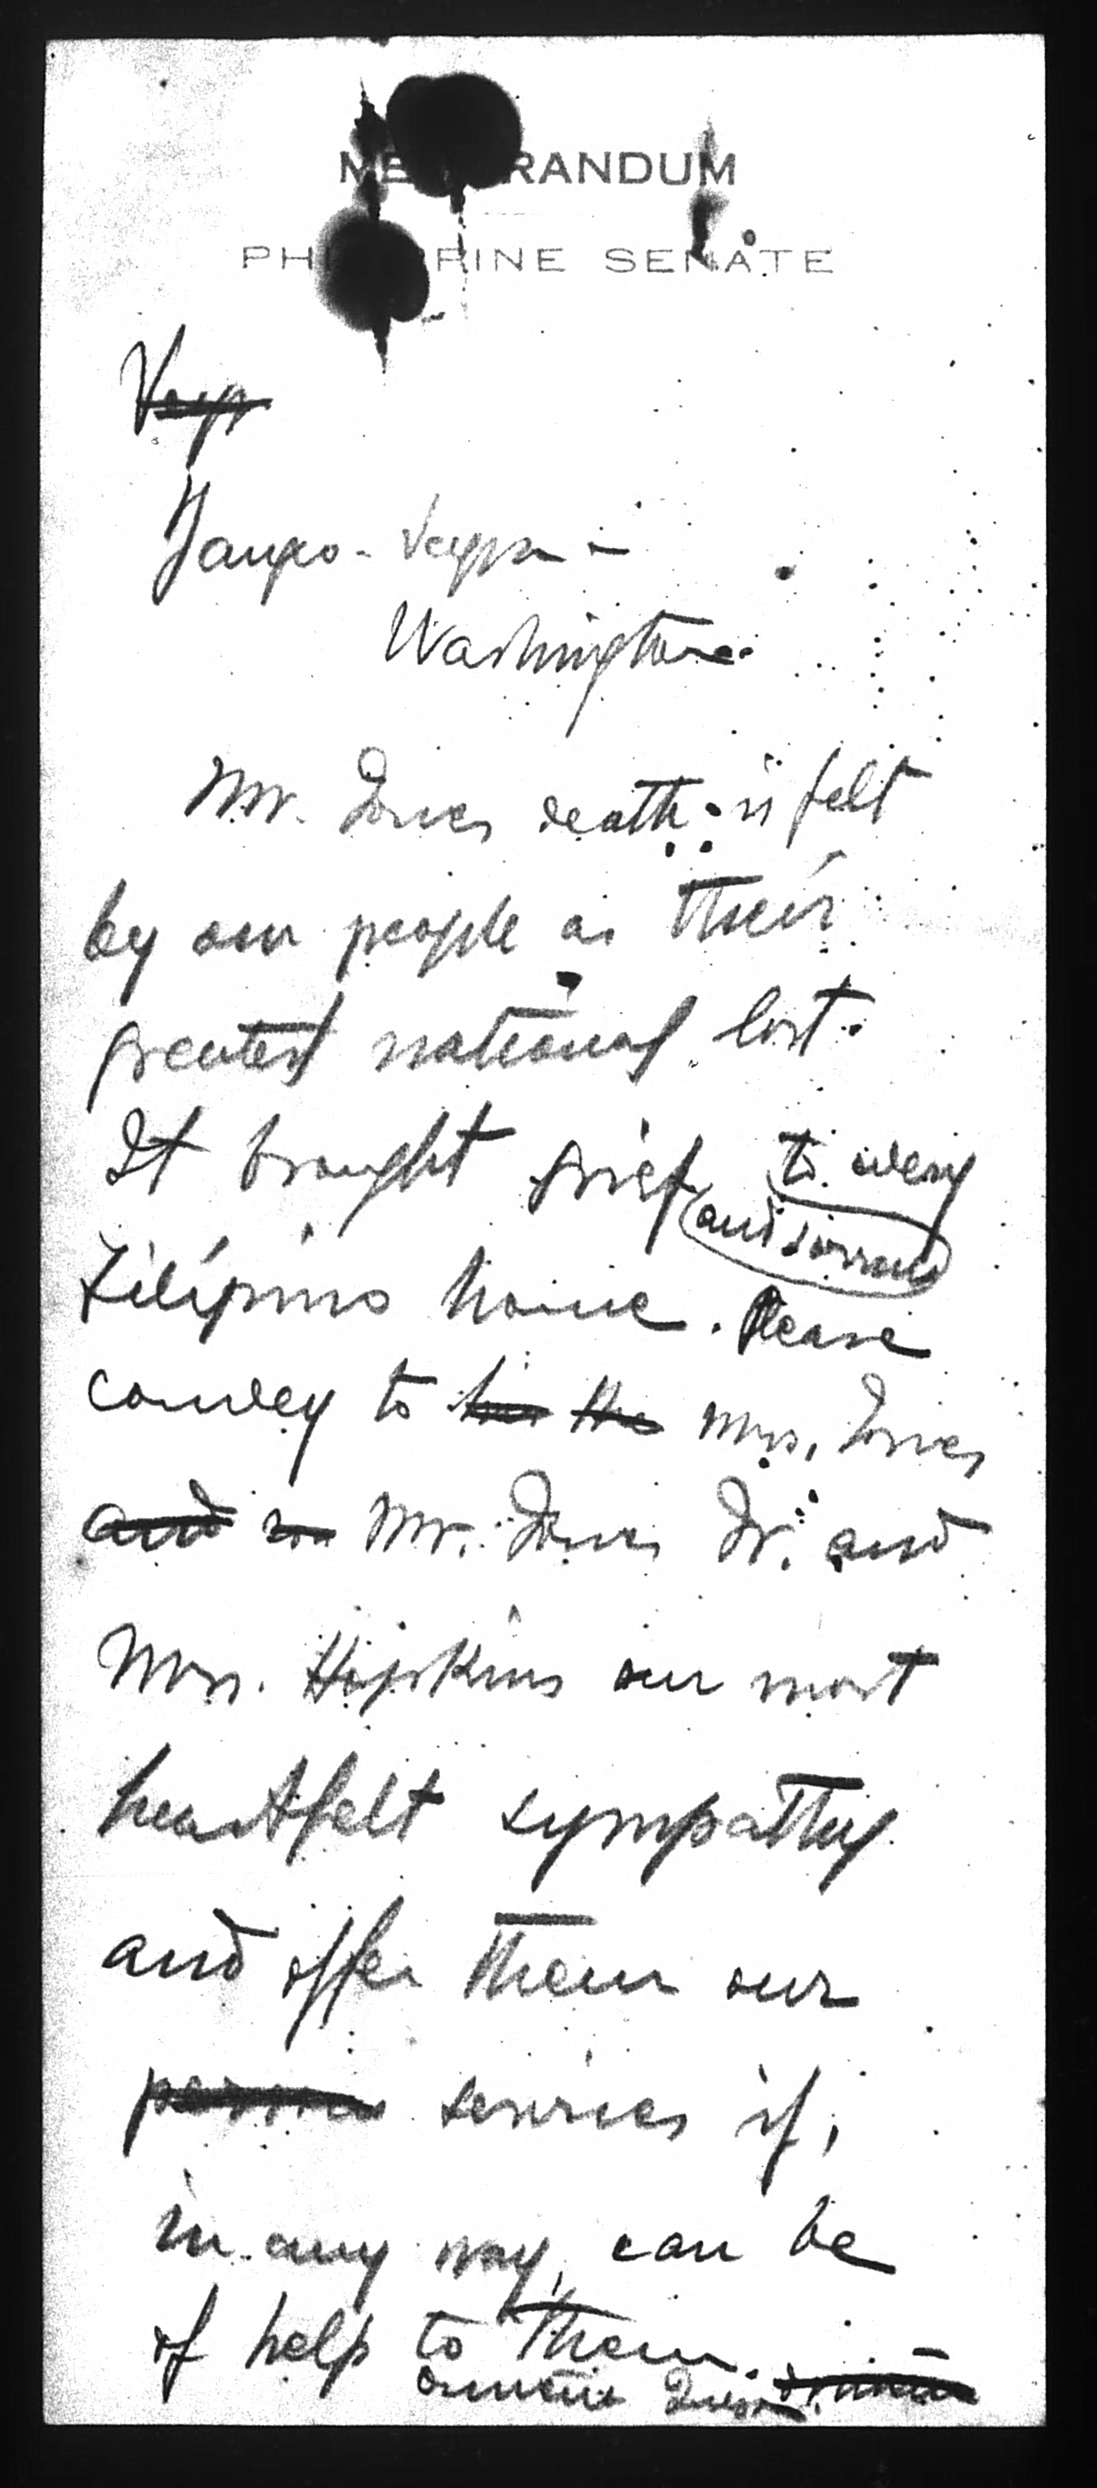 MEMORANDUM
PHILIPPINE SENATE
Yangco - Veyra -
Washington
Mr. Jones death is felt
by our people as their
greatest national lost.
It brought grief to every
and sorrow
Filipino home. Please
convey to his the Mrs. Jones
and Mr. Jones Jr. and
Mrs. Hopkins our most
heartfelt sympathy
and offer them our
services if,
in any way, can be
of help to them.